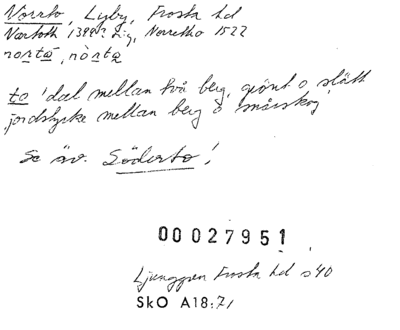 Vorrto, Lyby, Frosta hd
Værtoth 1392? Lig, Norretho 1522
nortα, nòrtα
to 'dal mellan två berg, grönt o slätt
jordstycke mellan berg o småskog'
Se äv. Söderto!
00027951
Ljunggren Frosta hd s 40
SkO A18:71